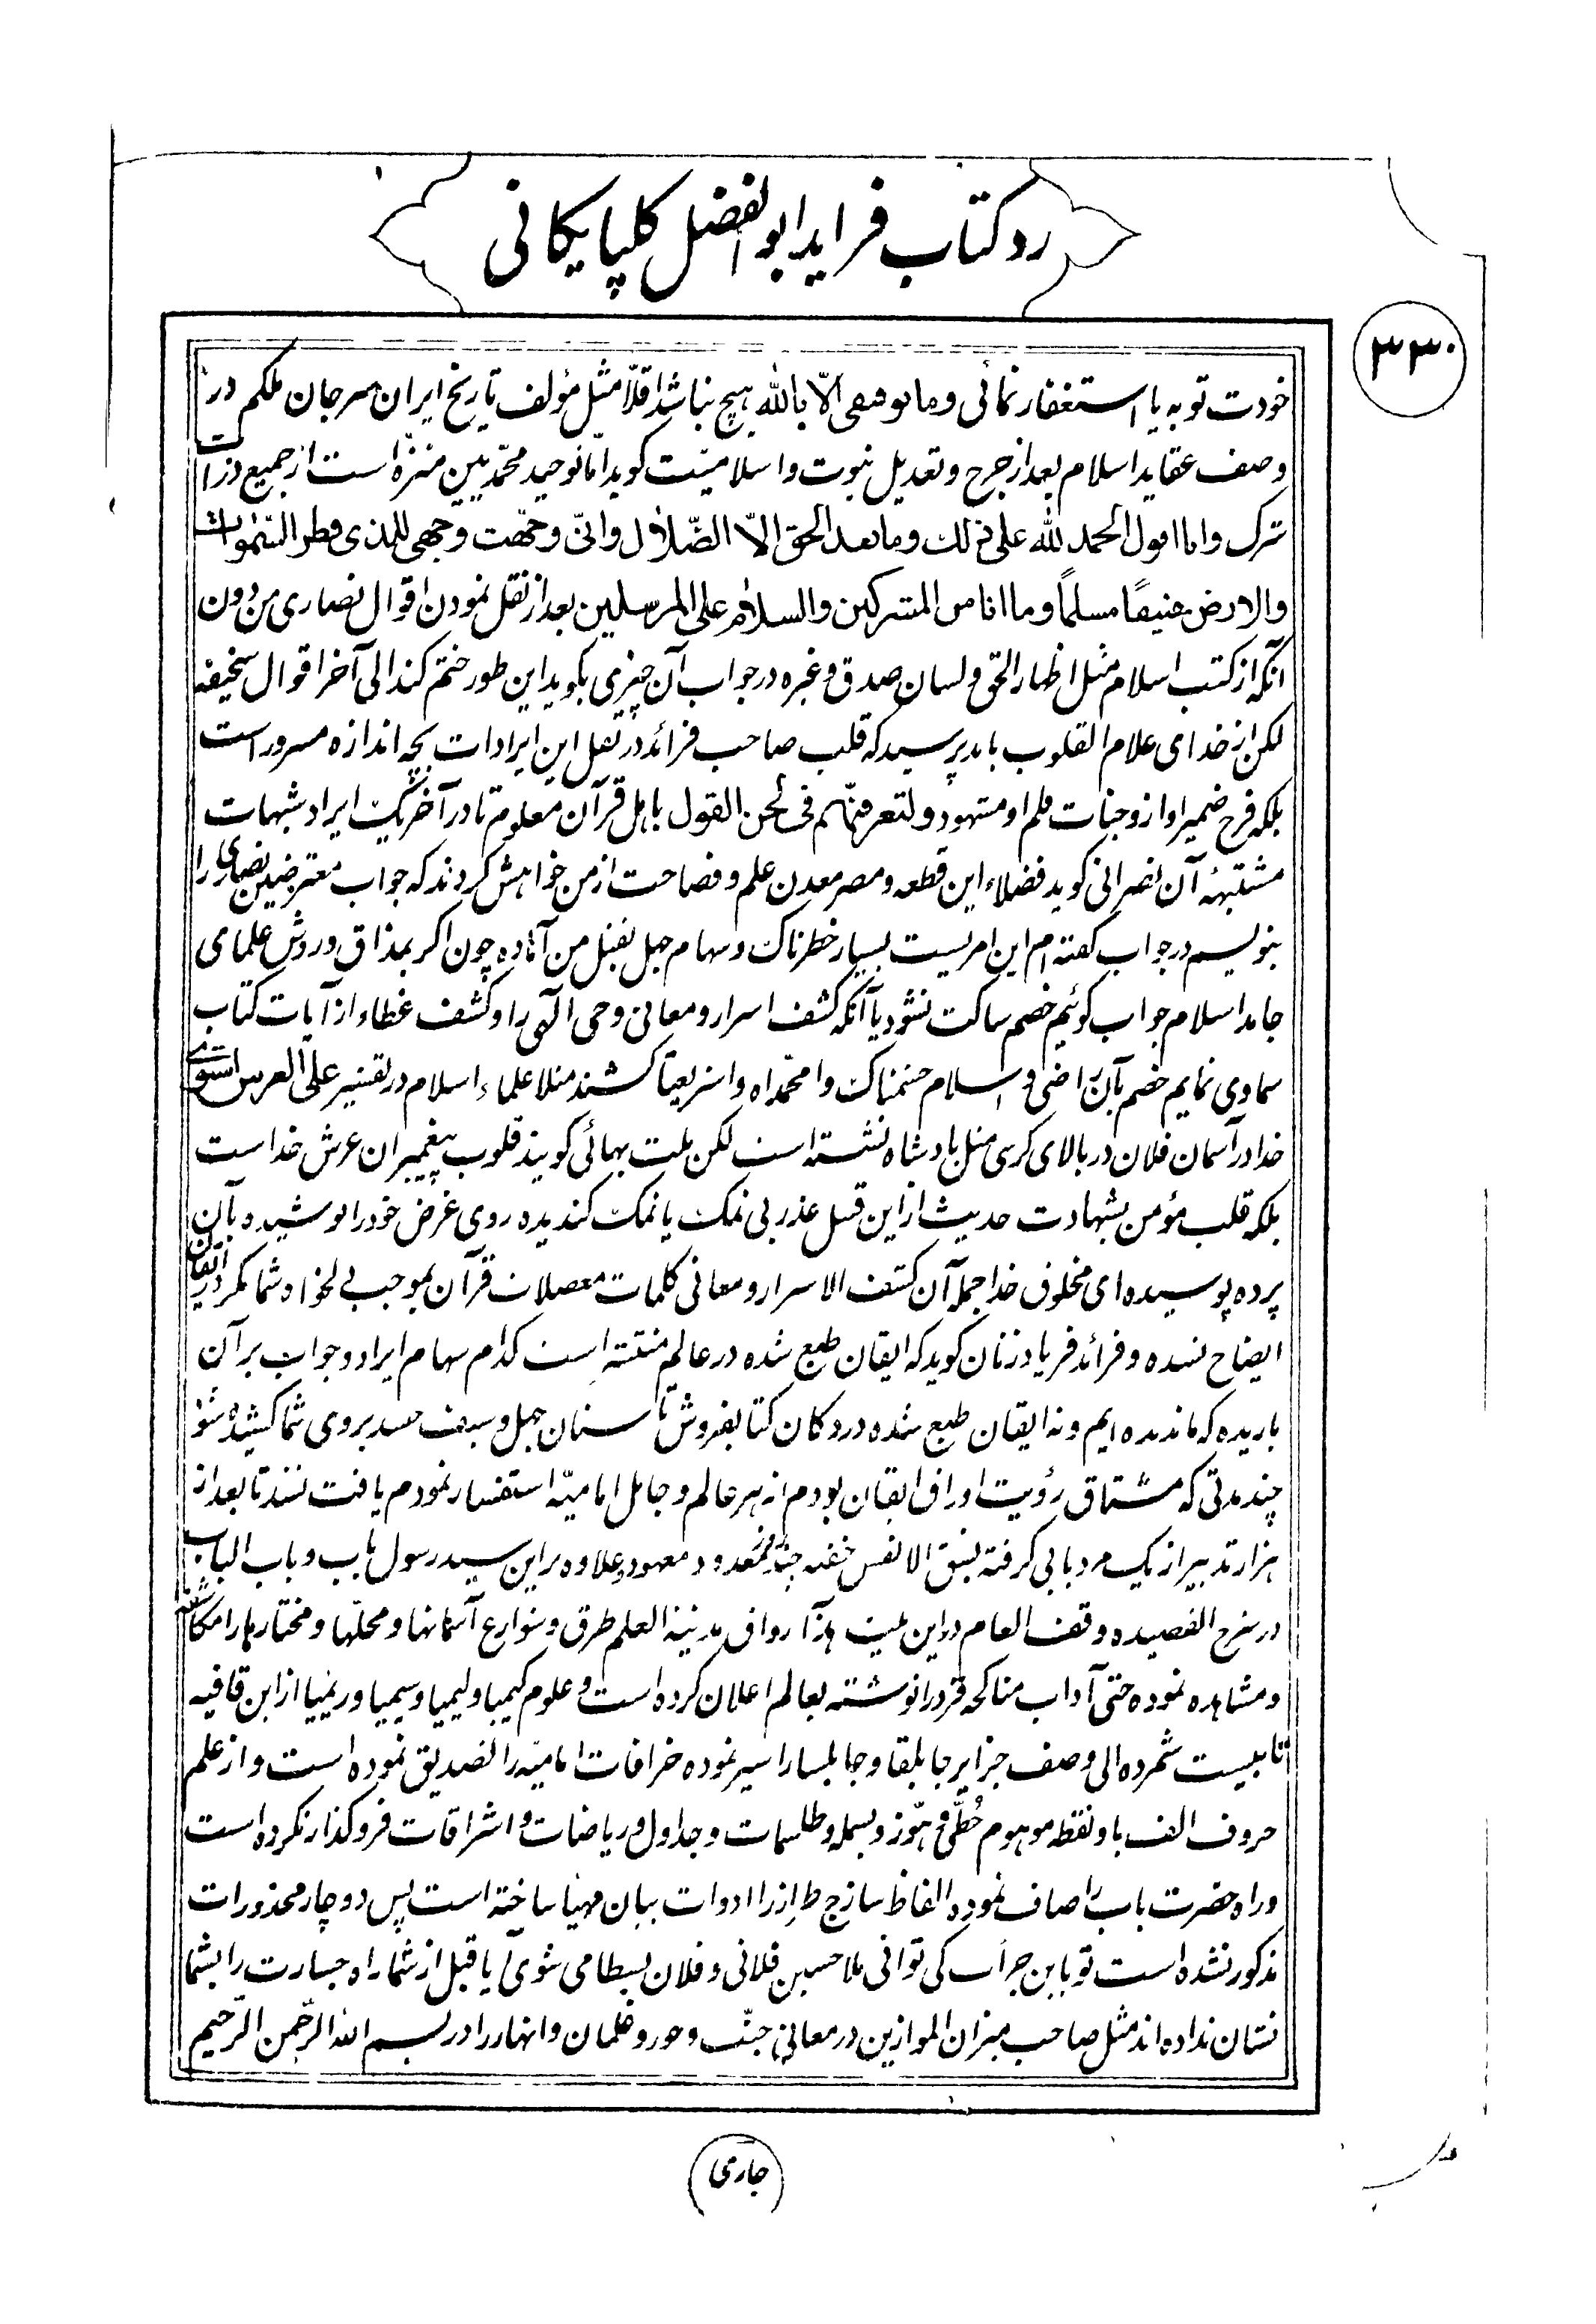 رد کتاب فراید ابوالفضل کلپایکانی
۳۳۰
خودت توبه یا استغفار نمائی وما توفیقی الّا بالله هیچ نباشد اقلّا مثل مؤلف تاریخ ایران سرجان ملکم در
وصف عقاید اسلام بعد از جرح و تعدیل نبوت و اسلامیّت کوید امّا توحید محمّدیین منزّه است از جمیع ذرات
شرک وانا اقول الحمد لله علی ذلك وما بعد الحق الّا الضّلال وانّی وجّهت وجهی للذی فطر السّموات
والارض حنیفًا مسلمًا وما انا من المشرکین والسلام علی المرسلین بعد از نقل نمودن اقوال نصاری من دون
آنکه از کتب اسلام مثل اظهار الحق و لسان صدق و غیره در جواب آن چیزی بکوید این طور ختم کند الی آخر اقوال سخیفه
لکن از خدای علام القلوب باید پرسید که قلب صاحب فرائد در نقل این ایرادات بچه اندازه مسرور است
بلکه فرح ضمیر او از وجنات قلم او مشهود ولتعرفنّهم فی لحن القول باهل قرآن معلوم تا در آخر یک ایراد شبهات
مشتبهٔ آن نصرانی کوید فضلاء این قطعه و مصر معدن علم و فصاحت از من خواهش کردند که جواب معترضین نصاری را
بنویسم در جواب کفته ام این امریست بسیار خطرناک و سهام جهل بقتل من آماده چون اکر بمذاق و روش علمای
جامد اسلام جواب کوئیم خصم ساکت نشود یا آنکه کشف اسرار و معانی وحی الهی را و کشف غطاء از آیات کتاب
سماوی نمایم خصم بآن راضی و اسلام خشمناک وا محمّداه وا شریعتا کشند مثلا علماء اسلام در تفسیر علی العرش استوی
خدا در آسمان فلان در بالای کرسی مثل پادشاه نشسته است لکن ملت بهائی کویند قلوب پیغمبران عرش خداست
بلکه قلب مؤمن بشهادت حدیث از این قبیل عذر بی نمک یا نمک کندیده روی غرض خود را پوشیده بآن
پرده پوسیده ای مخلوق خدا جمله آن کشف الاسرار و معانی کلمات معضلات قرآن بموجب دلخواه شما مکر در ایقان
ایضاح نشده و فرائد فریاد زنان کوید که ایقان طبع شده در عالم منتشته است کدام سهام ایراد و جواب بر آن
باریده که ما ندیده ایم و نه ایقان طبع شده در دکان کتابفروش تا سنان جهل و سیف حسد بروی شما کشیده شود
چند مدتی که مشتاق رؤیت اوراق ایقان بودم از هر عالم و جاهل امامیّه استفسار نمودم یافت نشد تا بعد از
هزار تدبیر از یک مرد بابی کرفته بشق الانفس خفیه چند روز معدود معهود علاوه بر این سید رسول باب و باب الباب
در شرح القصیده وقف العام در این بیت هذا رواق مدینة العلم طرق و شوارع آسمانها و محلّها و مختارها را مکاشفه
و مشاهده نموده حتی آداب مناکحه قرد را نوشته بعالم اعلان کرده است و علوم کیمیا و لیمیا و سیمیا و ریمیا از این قافیه
تا بیست شمرده الی وصف جزایر جابلقا و جابلسا را سیر نموده خرافات امامیّه را تصدیق نموده است و از علم
حروف الف با و نقطه موهوم حُطّی و هوّز و بسمله و طلسمات و جداول و ریاضات و اشراقات فرو کذار نکرده است
و راه حضرت باب را صاف نموده الفاظ سازج طراز را ادوات بیان مهیّا ساخته است پس دوچار محذورات
مذکور نشده است تو باین جرأت کی توانی ملا حسین فلانی و فلان بسطامی شوی آیا قبل از شما راه جسارت را بشما
نشان نداده اند مثل صاحب میزان الموازین در معانی جنّت و حور و غلمان و انهار را در بسم الله الرّحمن الرّحیم
جارمی